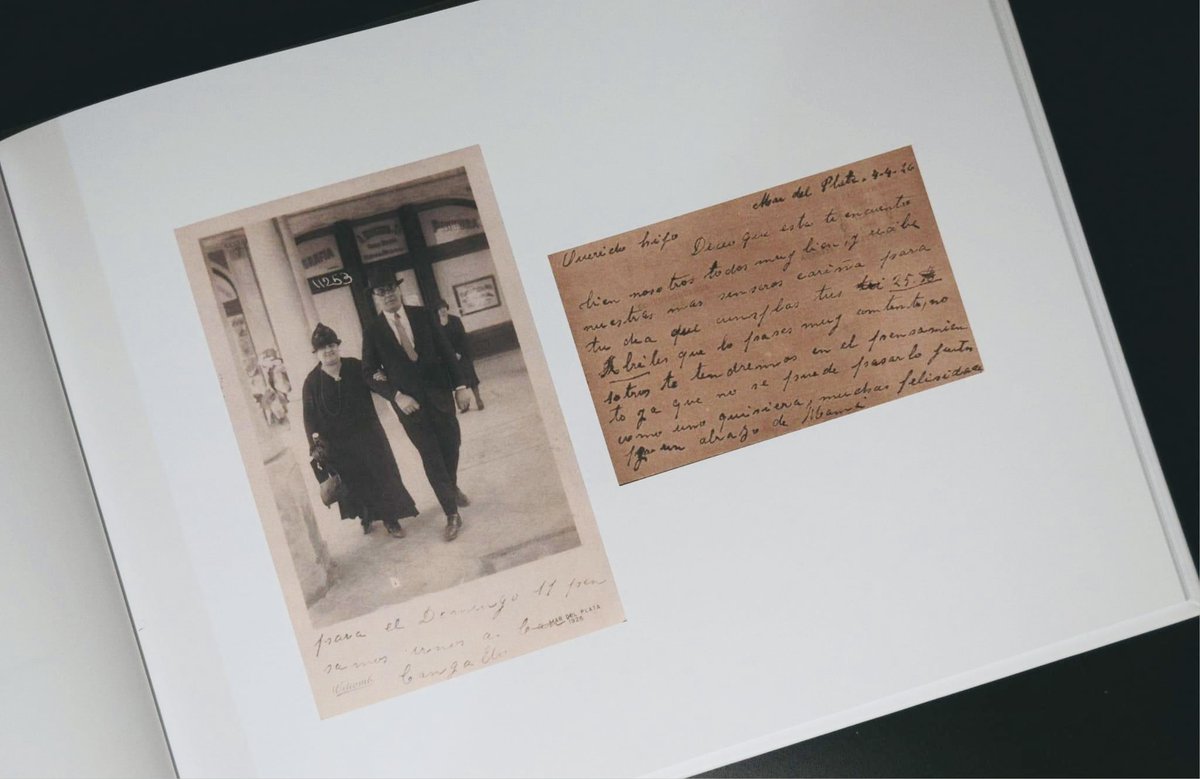 11253
para el Domingo 11 pen
samos irnos a
MAR DEL PLATA
1926
Witcomb
Mar del Plata. 4-4-26
Querido hijo
Deseo que esta te encuentre
bien nosotros todos muy bien y recibe
nuestras mas senseras cariña para
tu dia que cumplas tus 25
Abriles que lo pases muy contento, no
sotros te tendremos en el pensamien
to ya que no se puede pasarlo juntos
como uno quisiera, muchas felisidades
un abrazo de Mamá